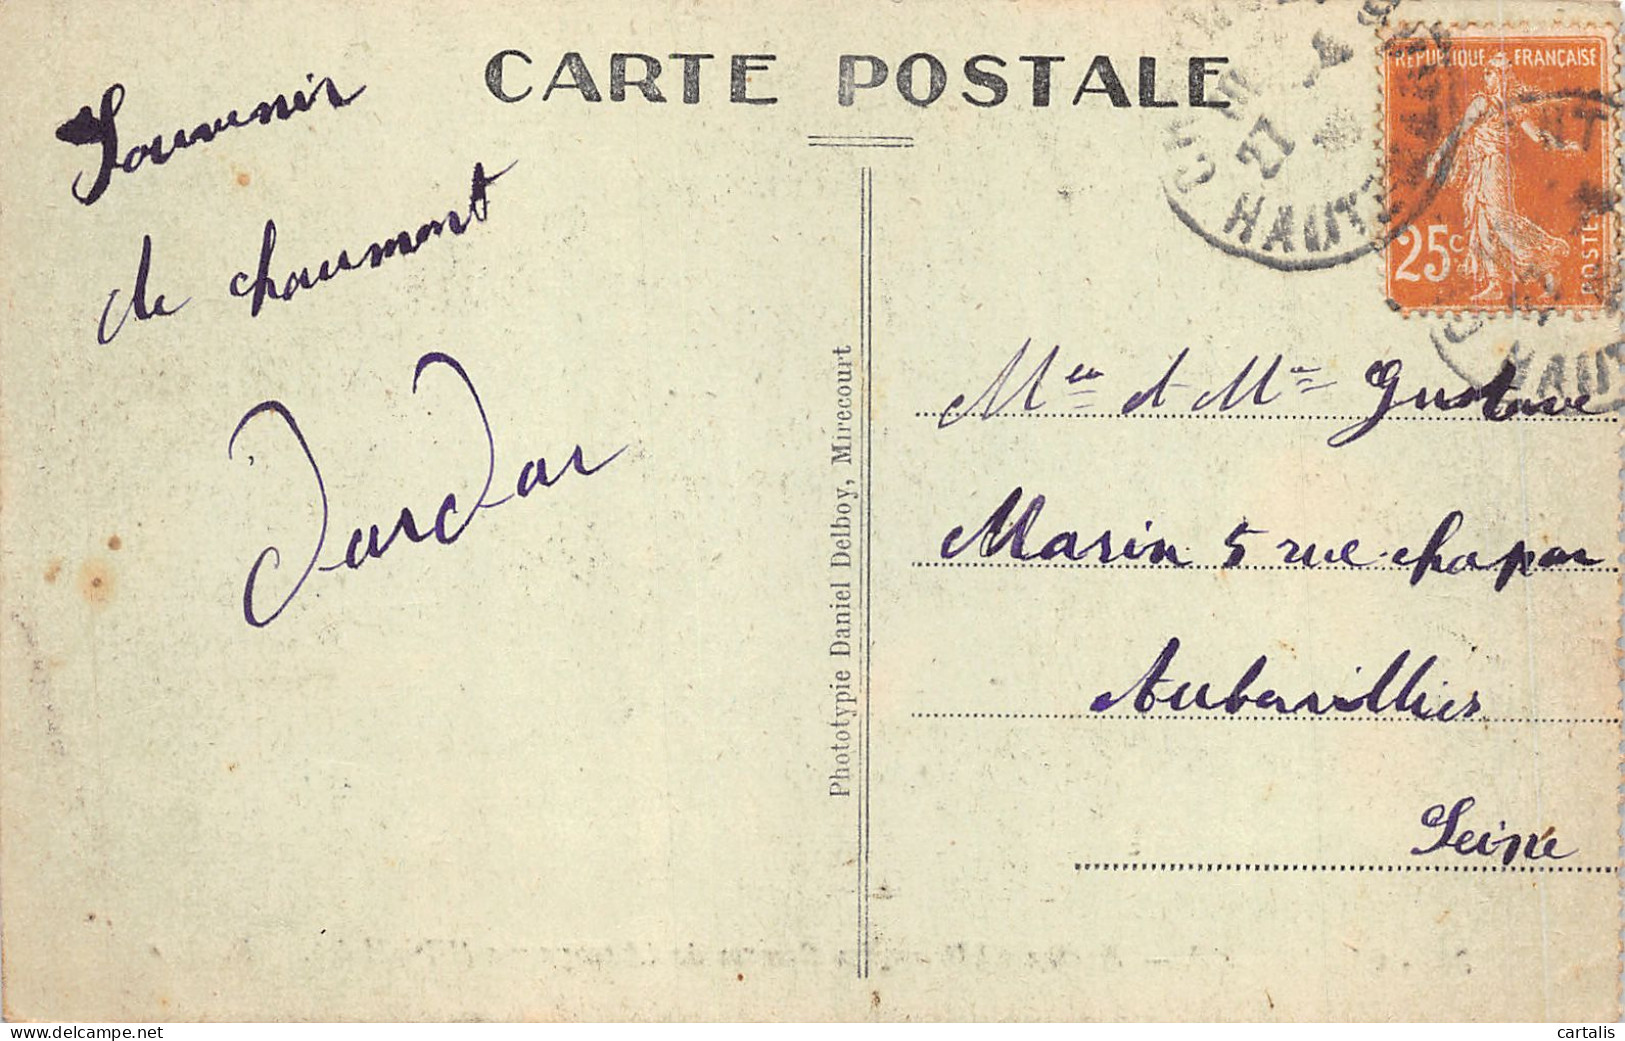 CARTE POSTALE
Souvenir
de chaumont
Dardar
Phototypie Daniel Delboy, Mirecourt
RÉPUBLIQUE FRANÇAISE
25c
POSTES
27
HAUTE
HAUT
Gustave
Marin 5 rue chapon
Aubervilliers
Seine
delcampe.net
cartalis